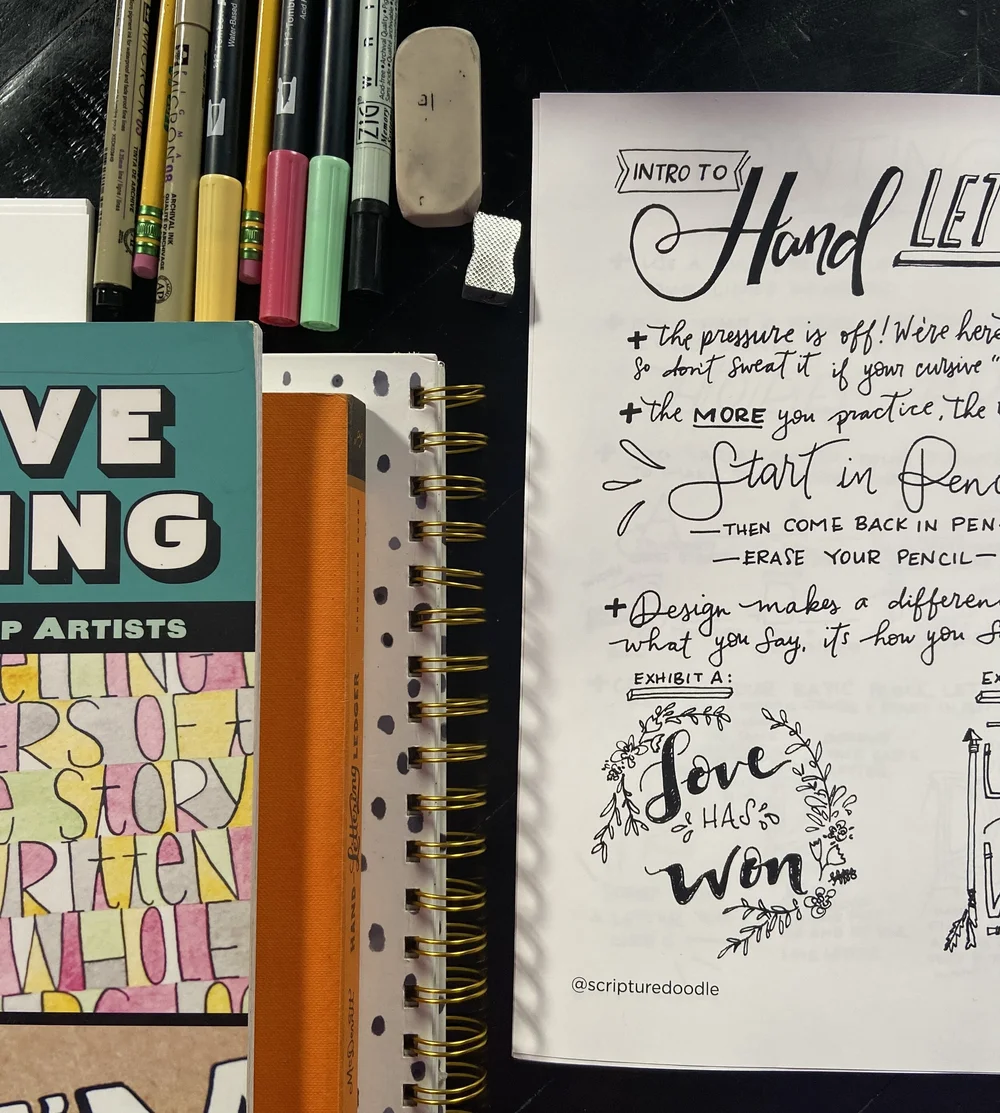 MICRON 08
ARCHIVAL INK
Water-Based
Memory
VE
ING
P ARTISTS
ERS OF t
e StORY
WRIttEN
WHOLE
HAND Lettering LEDGER
McDevitt
INTRO TO
Hand LET
+ The pressure is off! We're here
so don't sweat it if your cursive "
+ the MORE you practice, the
Start in Penc
—THEN COME BACK IN PEN-
—ERASE YOUR PENCIL—
+ Design makes a differen
what you say, it's how you s
EXHIBIT A:
EX
Love
HAS
won
@scripturedoodle